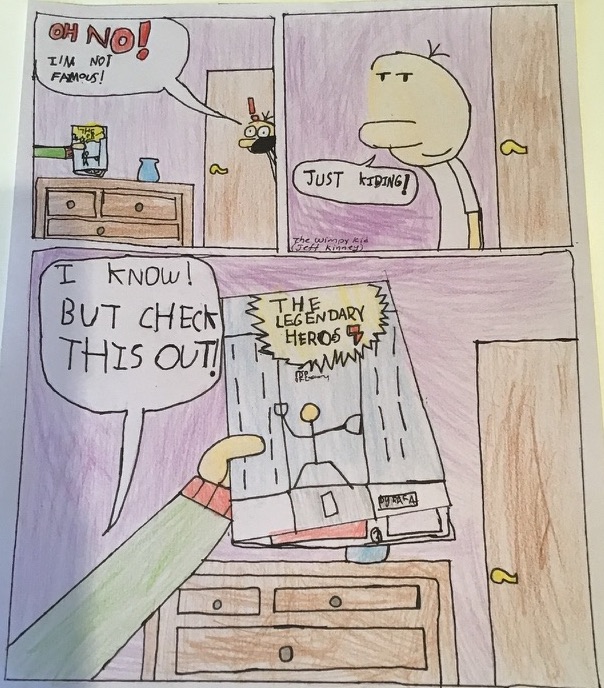 OH NO!
I'M NOT
FAMOUS!
!
THE
JUST KIDING!
The Wimpy Kid
(Jeff Kinney)
I KNOW!
BUT CHECK
THIS OUT!
THE
LEGENDARY
HEROS
BY RAFA